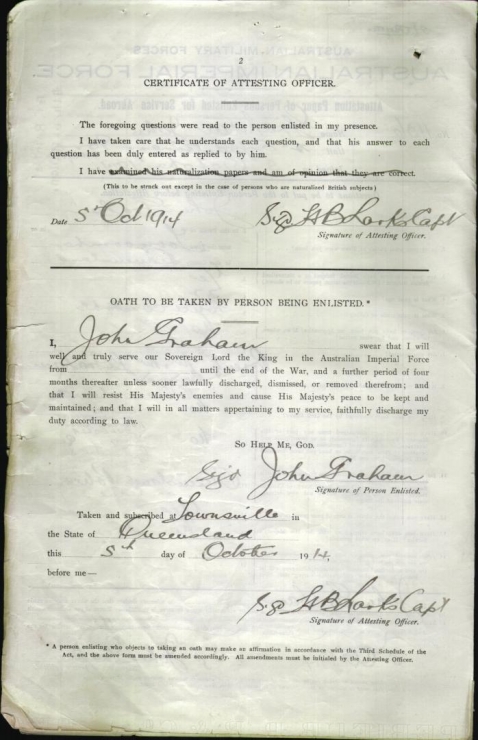 2
CERTIFICATE OF ATTESTING OFFICER.
The foregoing questions were read to the person enlisted in my presence.
I have taken care that he understands each question, and that his answer to each
question has been duly entered as replied to by him.
I have examined his naturalization papers and am of opinion that they are correct.
(This to be struck out except in the case of persons who are naturalized British subjects)
Date 5th Oct 1914
Capt
Signature of Attesting Officer.
OATH TO BE TAKEN BY PERSON BEING ENLISTED.*
I, John Graham swear that I will
well and truly serve our Sovereign Lord the King in the Australian Imperial Force
from until the end of the War, and a further period of four
months thereafter unless sooner lawfully discharged, dismissed, or removed therefrom; and
that I will resist His Majesty's enemies and cause His Majesty's peace to be kept and
maintained; and that I will in all matters appertaining to my service, faithfully discharge my
duty according to law.
So Help Me, God.
John Graham
Signature of Person Enlisted.
Taken and subscribed at Townsville in
the State of Queensland
this 5th day of October 1914,
before me—
Capt
Signature of Attesting Officer.
* A person enlisting who objects to taking an oath may make an affirmation in accordance with the Third Schedule of the
Act, and the above form must be amended accordingly. All amendments must be initialed by the Attesting Officer.